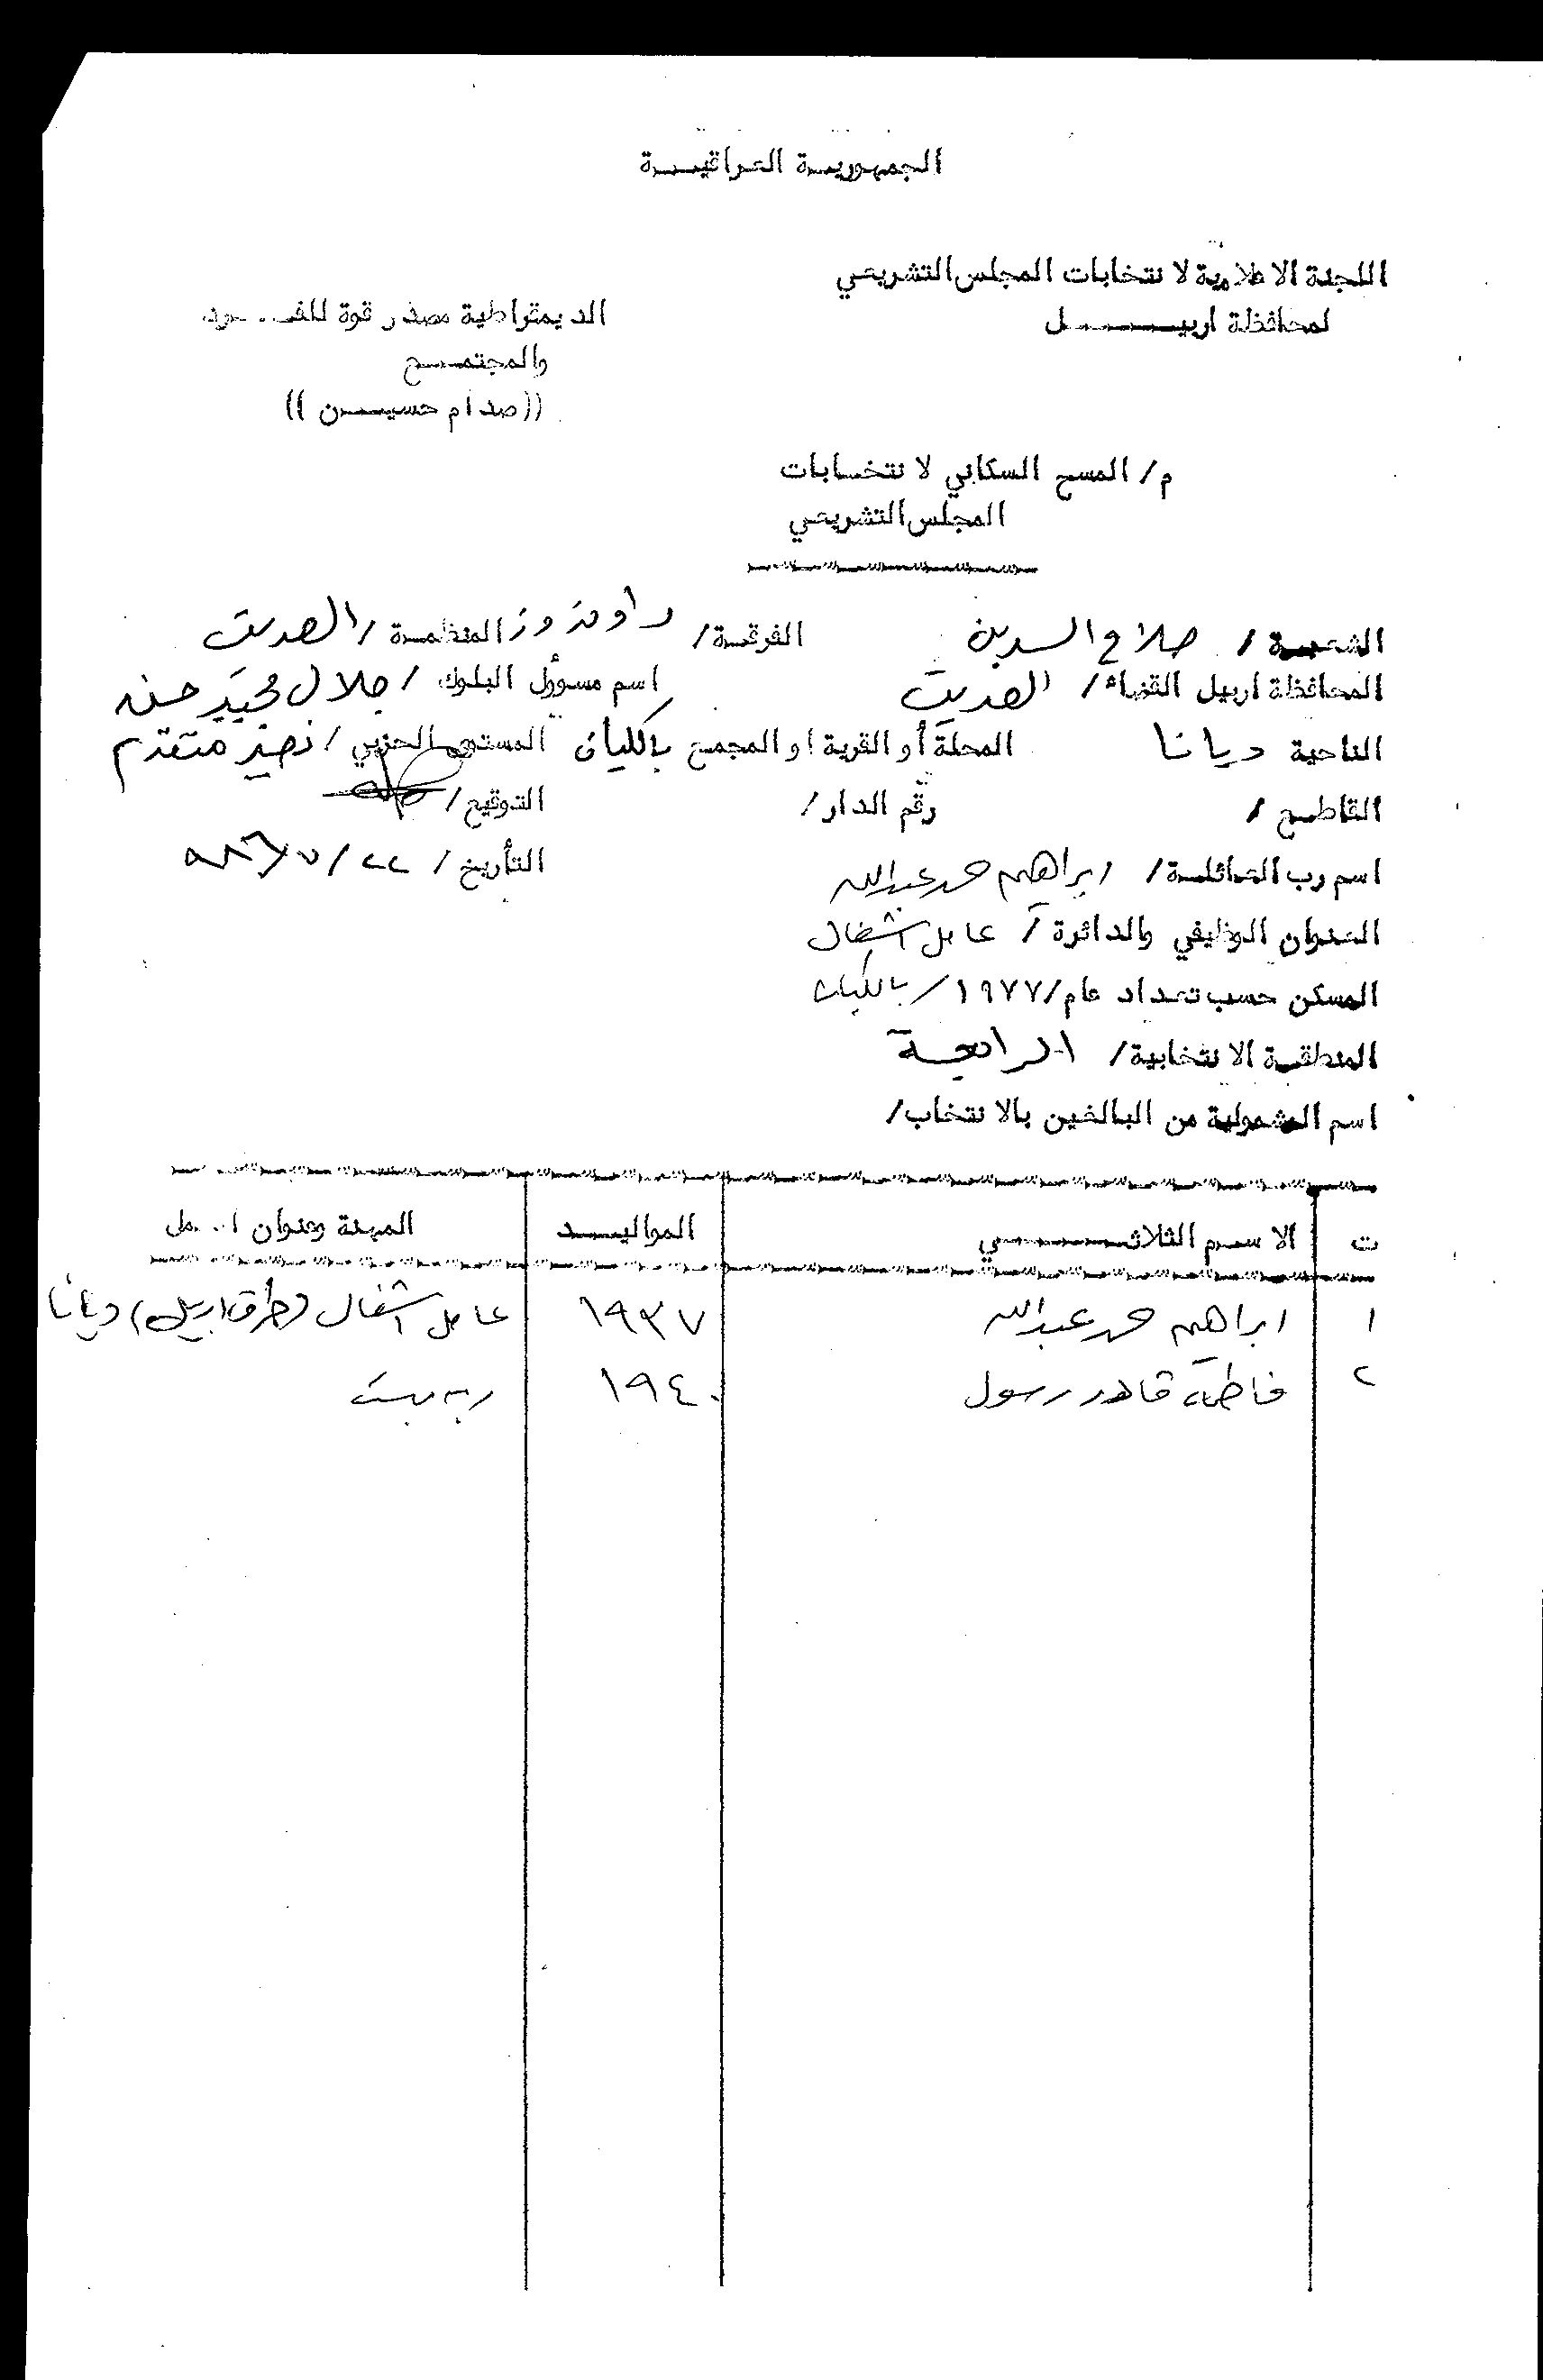 الجمهورية العراقية
اللجنة الاعلامية لانتخابات المجلس التشريعي
لمحافظة اربيل
الديمقراطية مصدر قوة للفرد
والمجتمع
((صدام حسين))
م/ المسح السكاني لانتخابات
المجلس التشريعي
الشعبة/ صلاح الدين الفرقة/ راوندوز المنظمة/ الصديق
المحافظة اربيل القضاء/ الصديق اسم مسؤول البلوك/ جلال مجيد حسن
الناحية ديانا المحلة أو القرية او المجمع بالكيان المستوى الحزبي/ نصير متقدم
القاطع/ رقم الدار/ التوقيع/
اسم رب العائلة/ ابراهيم حمد عبدالله التأريخ/ ٢٢/٧/
العنوان الوظيفي والدائرة/ عامل اشغال
المسكن حسب تعداد عام/١٩٧٧/ بالكيان
المنطقة الانتخابية/ الرابعة
اسم المشمولية من البالغين بالانتخاب/
ت الاسم الثلاثي المواليد المهنة وعنوان العمل
١ ابراهيم حمد عبدالله ١٩٣٧ عامل اشغال (طرق اربيل) ديانا
٢ فاطمة قادر رسول ١٩٤٠ ربه بيت